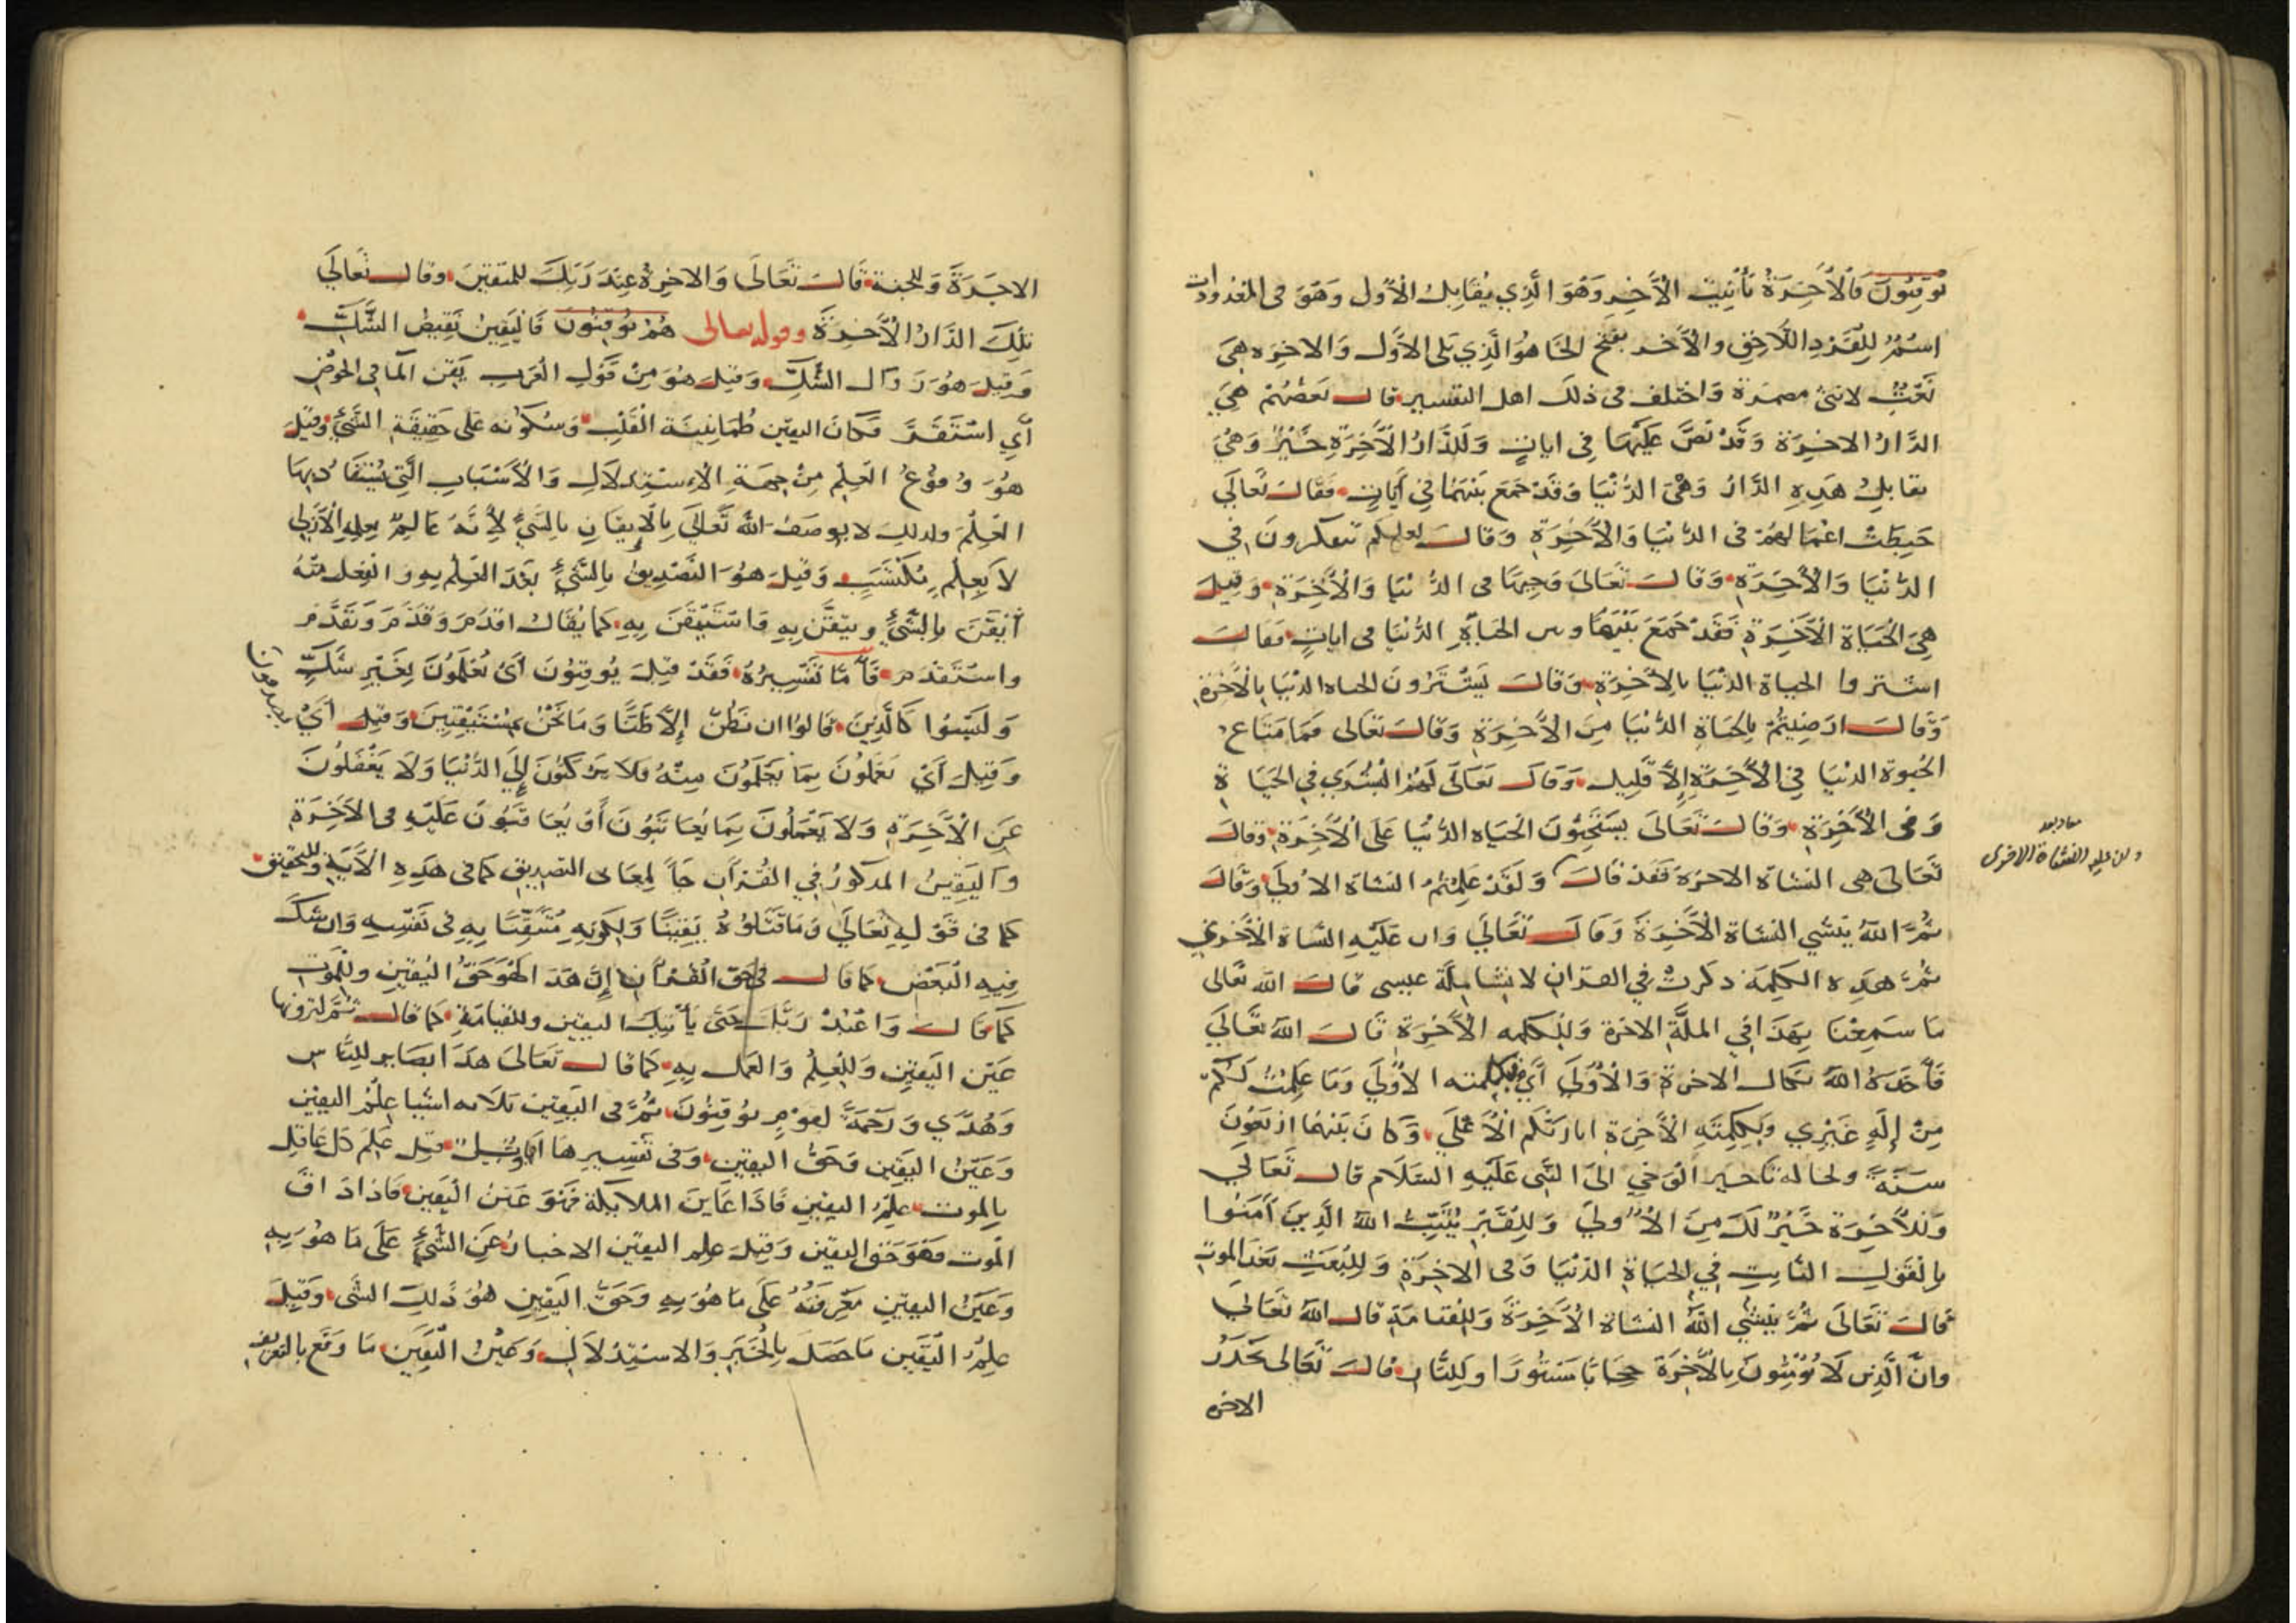 توقنون فالآخرة تأنيث الآخر وهو الذي يقابل الاول وهو في المعدودات
اسم للفرد اللاحق والآخر بفتح الخا هو الذي يلي الاول والاخرة هي
نعت لانثى مضمرة واختلف في ذلك اهل التفسير قال بعضهم هي
الدار الاخرة وقد نص عليها في ايات وللدار الآخرة خير وهي
يقابل هذه الدار وهي الدنيا وقد جمع بينهما في آيات فقال تعالى
حبطت اعمالهم في الدنيا والآخرة وقال لعلكم تتفكرون في
الدنيا والآخرة وقال تعالى وجيها في الدنيا والآخرة وقيل
هي الحياة الآخرة فقد جمع بينها وبين الحياة الدنيا في ايات فقال
اشتروا الحياة الدنيا بالآخرة وقال يشترون الحياه الدنيا بالآخرة
وقال ارضيتم بالحياة الدنيا من الآخرة وقال تعالى فما متاع
الحيوة الدنيا في الآخرة إلا قليل وقال تعالى لهم البشرى في الحياة
وفى الآخرة وقال تعالى يستحبون الحياه الدنيا على الآخرة وقال
تعالى هي النشاة الاخرة فقد قال ولقد علمتم النشاة الاولى وقال
ثم الله ينشي النشاة الآخرة وقال تعالى وان عليه النشاة الأخرى
ثم هذه الكلمة ذكرت في القران لاشيا ملة عيسى قال الله تعالى
ما سمعنا بهذا في الملة الاخرة وللكلمه الآخرة قال الله تعالى
فأخذه الله نكال الاخرة والأولى أي بكلمته الاولى وما علمت لكم
من إله غيري وبكلمته الآخرة انا ربكم الأعلى وكان بينهما اربعون
سنة ولحالة تاخير الوحي الى النبي عليه السلام قال تعالى
وللآخرة خير لك من الأولى وللقبر يثبت الله الذين آمنوا
بالقول الثابت في الحياة الدنيا وفى الاخرة وللبعث بعد الموت
قال تعالى ثم ينشي الله النشاة الآخرة وللقيامة قال الله تعالى
وان الذين لا يؤمنون بالآخرة حجابا مستورا وللنار قال تعالى يحذر
الاخرة
وان عليه النشاة الاخرى
الاخرة وللجنة قال تعالى والاخرة عند ربك للمتقين وقال تعالى
تلك الدار الآخرة وقوله تعالى هم يوقنون فاليقين نقيض الشك
وقيل هو زوال الشك وقيل هو من قول العرب يقن الما في الحوض
أي استقر فكان اليقين طمانينة القلب وسكونه على حقيقة الشيء وقيل
هو وقوع العلم من جهة الاستدلال والأسباب التي يستفاد بها
العلم ولذلك لا يوصف الله تعالى بالايقان بالشيء لأنه عالم بعلمه الأزلي
لا بعلم مكتسب وقيل هو التصديق بالشيء بعد العلم به والفعل منه
أيقن بالشيء وتيقن به واستيقن به كما يقال اقدم وقدم وتقدم
واستقدم فأما تفسيره فقد قيل يوقنون أي يعلمون بغير شك
وليسوا كالذين قالوا ان نظن إلا ظنا وما نحن بمستيقنين وقيل أي يصدقون
وقيل أي يعملون بما يعلمون منه فلا يركنون إلى الدنيا ولا يغفلون
عن الآخرة ولا يعملون بما يعاتبون أو يعاقبون عليه في الآخرة
واليقين المذكور في القرآن جا لمعان التصديق كما في هذه الآية وللتحقيق
كما في قوله تعالى وما قتلوه يقينا ولكونه متيقنا به في نفسه وان شك
فيه البعض كما قال في حق القرآن إن هذا لهو حق اليقين وللموت
كما قال واعبد ربك حتى يأتيك اليقين وللقيامة كما قال ثم لترونها
عين اليقين وللعلم والعمل به كما قال تعالى هذا بصاير للناس
وهدى ورحمة لقوم يوقنون ثم في اليقين ثلاثه اشيا علم اليقين
وعين اليقين وحق اليقين وفى تفسيرها اقاويل قيل علم كل عاقل
بالموت علم اليقين فاذا عاين الملايكة فهو عين اليقين فاذا ذاق
الموت فهو حق اليقين وقيل علم اليقين الاخبار عن الشيء على ما هو به
وعين اليقين معرفته على ما هو به وحق اليقين هو ذلك الشى وقيل
علم اليقين ما حصل بالخبر والاستدلال وعين اليقين ما وقع بالتعريف